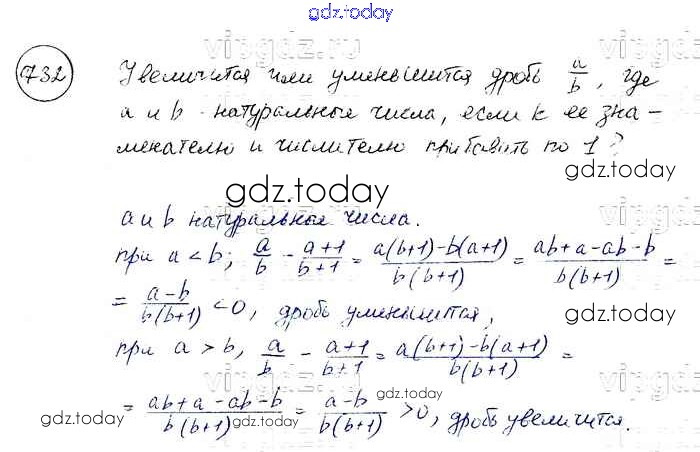 gdz.today
vipgdz.ru
732
Увеличится или уменьшится дробь a/b, где
a и b - натуральные числа, если к ее зна-
менателю и числителю прибавить по 1?
gdz.today
gdz.today
a и b натуральные числа.
при a < b; a/b - (a+1)/(b+1) = (a(b+1)-b(a+1))/(b(b+1)) = (ab+a-ab-b)/(b(b+1)) =
= (a-b)/(b(b+1)) <0, дробь уменьшится,
gdz.today
при a > b, a/b - (a+1)/(b+1) = (a(b+1)-b(a+1))/(b(b+1)) =
= (ab+a-ab-b)/(b(b+1)) = (a-b)/(b(b+1)) >0, дробь увеличится.
gdz.today
gdz.today
gdz.today